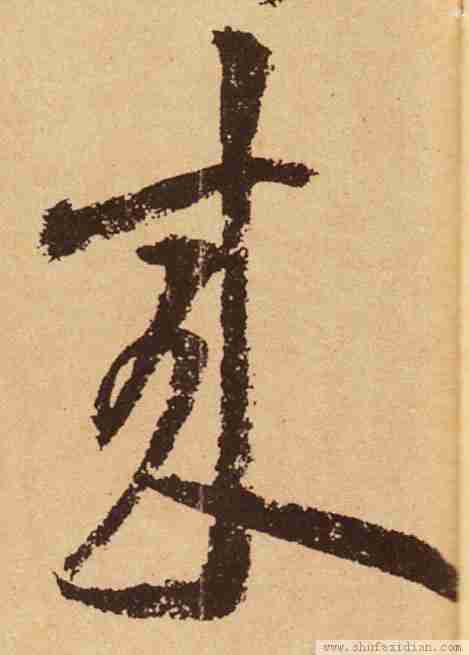 來
www.shufazidian.com